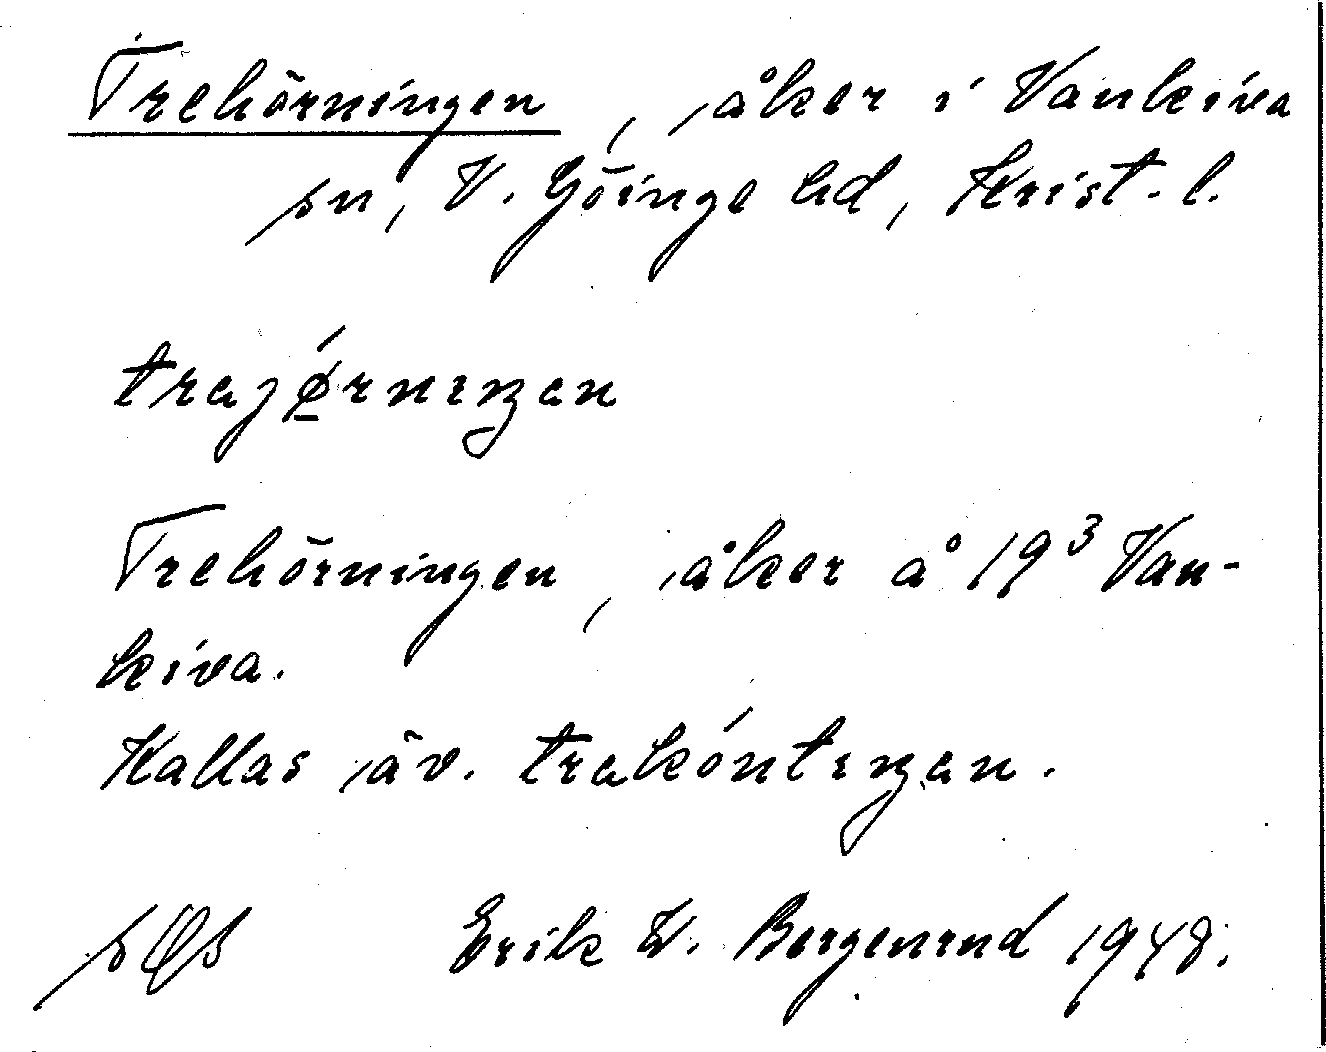 Trehörningen, åker i Vankiva
sn, V. Göinge hd, Krist. l.
trejǿrningen
Trehörningen, åker å 19³ Van-
kiva.
Kallas äv. trekóntingen.
Erik W. Bergenrud 1948.